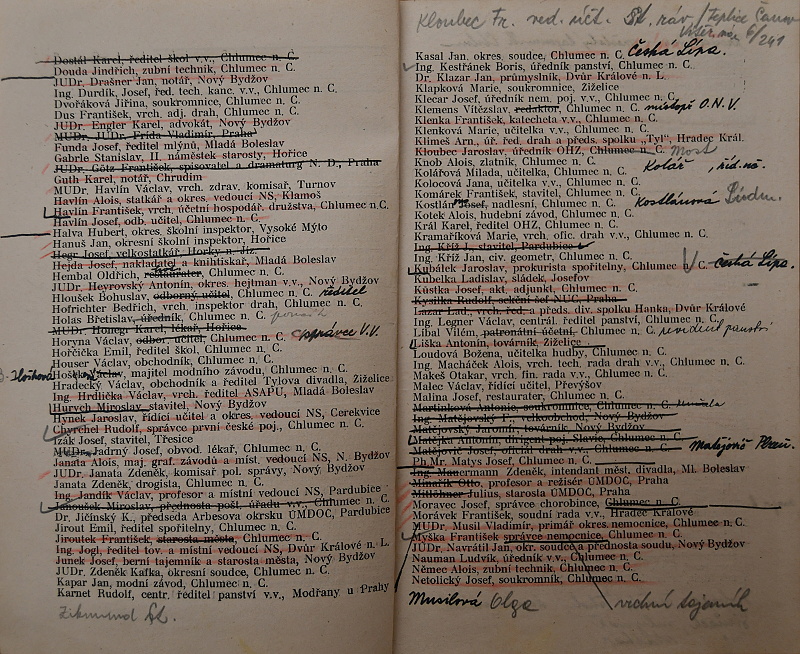 Dostál Karel, ředitel škol v.v., Chlumec n. C.
Douda Jindřich, zubní technik, Chlumec n. C.
JUDr. Drašner Jan, notář, Nový Bydžov
Ing. Durdík, Josef, řed. tech. kanc. v.v., Chlumec n. C.
Dvořáková Jiřina, soukromnice, Chlumec n. C.
Dus František, vrch. adj. drah, Chlumec n. C.
JUDr. Engler Karel, advokát, Nový Bydžov
MUDr. JUDr. Frída Vladimír, Praha
Funda Josef, ředitel mlýnů, Mladá Boleslav
Gabrle Stanislav, II. náměstek starosty, Hořice
JUDr. Götz František, spisovatel a dramaturg N. D., Praha
Guth Karel, notář, Chrudim
MUDr. Havlín Václav, vrch. zdrav. komisař, Turnov
Havlín Alois, statkář a okres. vedoucí NS, Klamoš
Havlín František, vrch. účetní hospodář. družstva, Chlumec n.C.
Havlín Josef, odb. učitel, Chlumec n. C.
Halva Hubert, okres. školní inspektor, Vysoké Mýto
Hanuš Jan, okresní školní inspektor, Hořice
Hegr Josef, velkostatkář, Horky n. Jiz.
Hejda Josef, nakladatel a knihtiskař, Mladá Boleslav
Hembal Oldřich, Chlumec n. C.
JUDr. Heyrovský Antonín, okres. hejtman v.v., Nový Bydžov
Hloušek Bohuslav, odborný učitel, Chlumec n. C. ředitel
Hofrichter Bedřich, vrch. inspektor drah, Chlumec n. C.
Holas Břetislav, úředník, Chlumec n. C.
MUDr. Honegr Karel, lékař, Hořice
Horyna Václav, odbor. učitel, Chlumec n. C. správce V.V.
Hořčička Emil, ředitel škol, Chlumec n. C.
Houser Václav, obchodník, Chlumec n. C.
majitel modního závodu, Chlumec n. C.
Hradecký Václav, obchodník a ředitel Tylova divadla, Želiz­ice
Ing. Hrdlička Václav, vrch. ředitel ASAPU, Mladá Boleslav
Hurych Miroslav, stavitel, Nový Bydžov
Hynek Jaroslav, řídící učitel a okres. vedoucí NS, Cerekvice
Chvrchel Rudolf, správce první české poj., Chlumec n. C.
Izák Josef, stavitel, Třesice
MUDr. Jadrný Josef, obvod. lékař, Chlumec n. C.
Janata Alois, maj. graf. závodů a míst. vedoucí NS, N. Bydžov
JUDr. Janata Zdeněk, komisař pol. správy, Nový Bydžov
Janata Zdeněk, drogista, Chlumec n. C.
Ing. Jandík Václav, profesor a místní vedoucí NS, Pardubice
Janoušek Miroslav, přednosta pošt. úřadu v.v., Chlumec n. C.
Dr. Jičínský K., předseda Arbesova okrsku ÚMDOC, Pardubice
Jirout Emil, ředitel spořitelny, Chlumec n. C.
Jiroutek František, starosta města, Chlumec n. C.
Ing. Jogl, ředitel tov. a místní vedoucí NS, Dvůr Králové n. L.
Junek Josef, berní tajemník a starosta města, Nový Bydžov
JUDr. Zdeněk Kafka, okresní soudce, Chlumec n. C.
Kapar Jan, modní závod, Chlumec n. C.
Karnet Rudolf, centr. ředitel panství v.v., Modřany u Prahy
Zikmund
Kloubec Fr. ved. účt. St. ráv. / Teplice
6/241
Kasal Jan, okres. soudce, Chlumec n. C. Česká Lípa.
Ing. Kestřánek Boris, úředník panství, Chlumec n. C.
Dr. Klazar Jan, průmyslník, Dvůr Králové n. L.
Klapková Marie, soukromnice, Želizice
Klecar Josef, úředník nem. poj. v.v., Chlumec n. C.
Klemens Vítězslav, redaktor, Chlumec n. C. O.N.V.
Klenka František, katecheta v.v., Chlumec n. C.
Klenková Marie, učitelka v.v., Chlumec n. C.
Klimeš Arn., úř. řed. drah a předs. spolku „Tyl“, Hradec Král.
Kloubec Jaroslav, úředník OHZ, Chlumec n. C. Most
Knob Alois, zlatník, Chlumec n. C.
Kolářová Milada, učitelka, Chlumec n. C. Kolář,
Kolocová Jana, učitelka v.v., Chlumec n. C.
Komárek František, stavitel, Chlumec n. C.
nadlesní, Chlumec n. C. Kostlánová
Kotek Alois, hudební závod, Chlumec n. C.
Král Karel, ředitel OHZ, Chlumec n. C.
Kramaříková Marie, vrch. ofic. drah v.v., Chlumec n. C.
Ing. Kříž J., stavitel, Pardubice
Ing. Kříž Jan, civ. geometr, Chlumec n. C.
Kubálek Jaroslav, prokurista spořitelny, Chlumec n. C. Česká Lípa.
Kubelka Ladislav, sládek, Josefov
Kůstka Josef, akt. adjunkt, Chlumec n. C.
Kysilka Rudolf, sekční šéf NUC, Praha
Lazar Lad., vrch. řed. a předs. div. spolku Hanka, Dvůr Králové
Ing. Legner Václav, centrál. ředitel panství, Chlumec n. C.
Líbal Vilém, patronátní účetní, Chlumec n. C.
Liška Antonín, továrník, Želizice
Loudová Božena, učitelka hudby, Chlumec n. C.
Ing. Macháček Alois, vrch. tech. rada drah v.v., Chlumec n. C.
Makeš Otakar, vrch. fin. rada v.v., Chlumec n. C.
Malec Václav, řídící učitel, Převýšov
Malina Josef, restaurater, Chlumec n. C.
Martínková Antonie, soukromnice, Chlumec n. C.
Ing. Matějovský F., velkoobchod, Nový Bydžov
Matějovský Jaroslav, továrník, Nový Bydžov
Matějka Antonín, dirigent poj. Slavie, Chlumec n. C.
Matějovič Josef, oficiál drah v.v., Chlumec n. C. Matějovič Plzeň.
Ph.Mr. Matys Josef, Chlumec n. C.
Ing. Mauermann Zdeněk, intendant měst. divadla, Ml. Boleslav
Minařík Otto, profesor a režisér ÚMDOC, Praha
Mitlöhner Julius, starosta ÚMDOC, Praha
Moravec Josef, správce chorobince, Chlumec n. C.
Morávek František, soudní rada v.v., Hradec Králové
MUDr. Musil Vladimír, primář okres. nemocnice, Chlumec n. C.
Myška František, správce nemocnice, Chlumec n. C.
JUDr. Navrátil Jan, okr. soudce a přednosta soudu, Nový Bydžov
Nauman Ludvík, úředník v.v., Chlumec n. C.
Němec Alois, zubní technik, Chlumec n. C.
Netolický Josef, soukromník, Chlumec n. C.
Musilová Olga vrchní tajemník